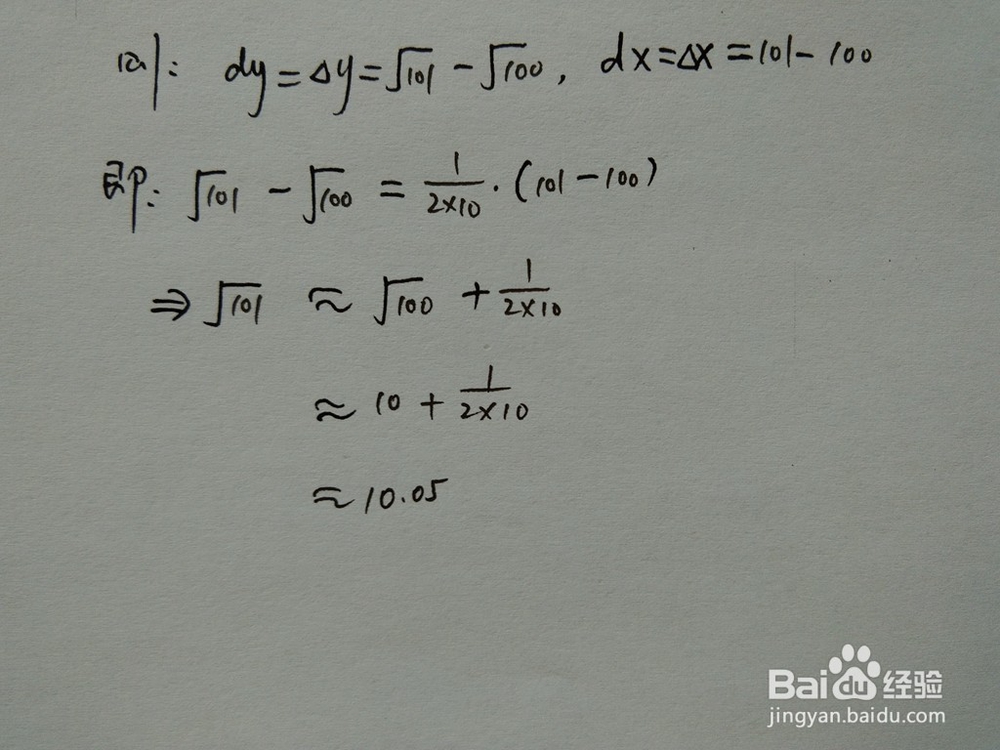 则: dy=Δy=√101-√100, dx=Δx=101-100
即: √101-√100=1/(2×10)·(101-100)
⇒√101≈√100+1/(2×10)
≈10+1/(2×10)
≈10.05
Baidu经验
jingyan.baidu.com